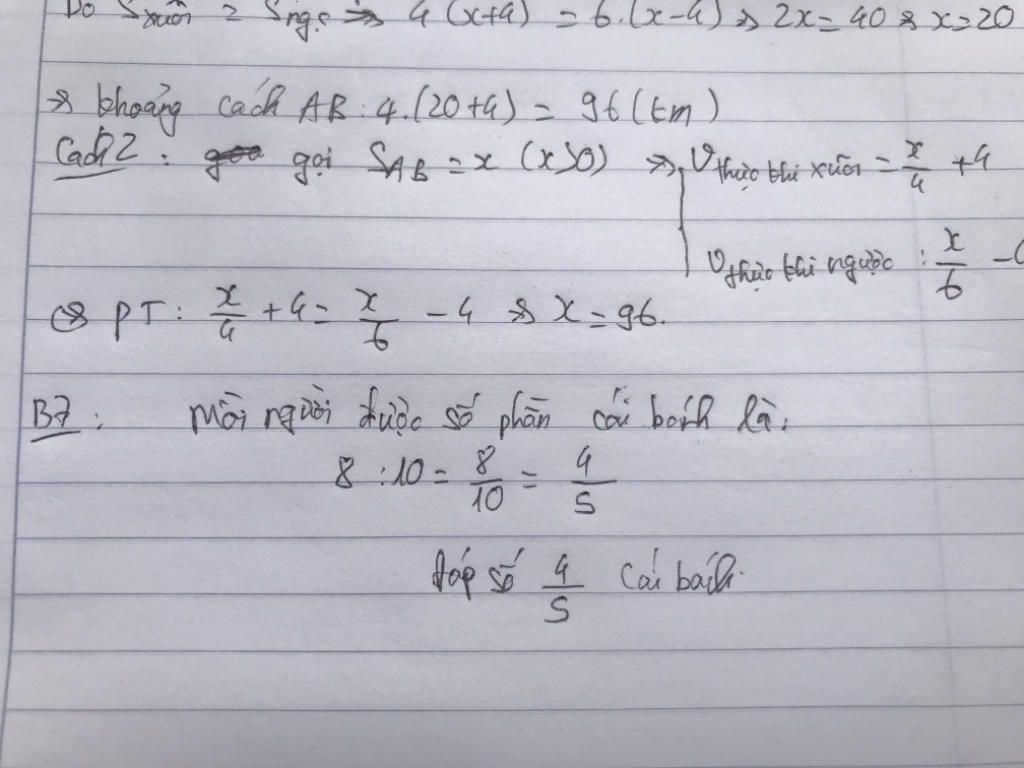 Do Sxuôi = Sngc => 4 (x+4) = 6.(x-4) => 2x = 40 => x=20
=> khoảng cách AB: 4.(20+4) = 96 (km)
Cách 2: gọi SAB = x (x>0) => Vthực khi xuôi = x/4 + 4
Vthực khi ngược : x/6 -
=> PT: x/4 + 4 = x/6 - 4 => x = 96.
B7: Mỗi người được số phần cái bánh là:
8 : 10 = 8/10 = 4/5
Đáp số 4/5 cái bánh.